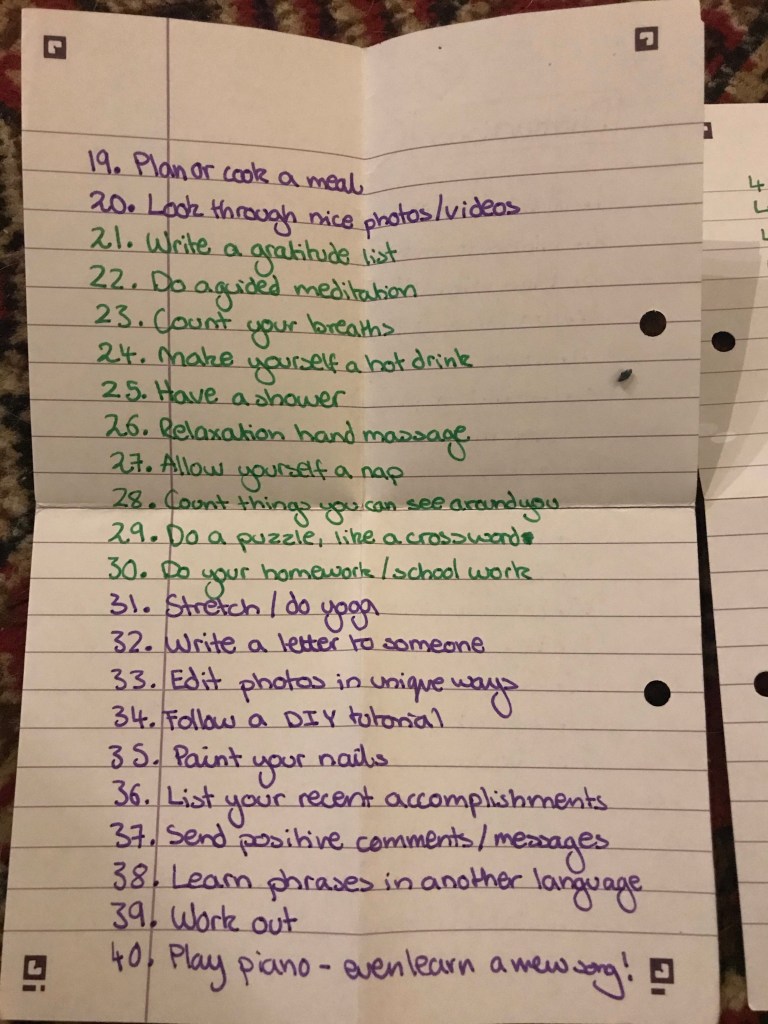 19. Plan or cook a meal
20. Look through nice photos/videos
21. Write a gratitude list
22. Do a guided meditation
23. Count your breaths
24. Make yourself a hot drink
25. Have a shower
26. Relaxation hand massage
27. Allow yourself a nap
28. Count things you can see around you
29. Do a puzzle, like a crossword
30. Do your homework/school work
31. Stretch / do yoga
32. Write a letter to someone
33. Edit photos in unique ways
34. Follow a DIY tutorial
35. Paint your nails
36. List your recent accomplishments
37. Send positive comments/messages
38. Learn phrases in another language
39. Work out
40. Play piano - even learn a new song!